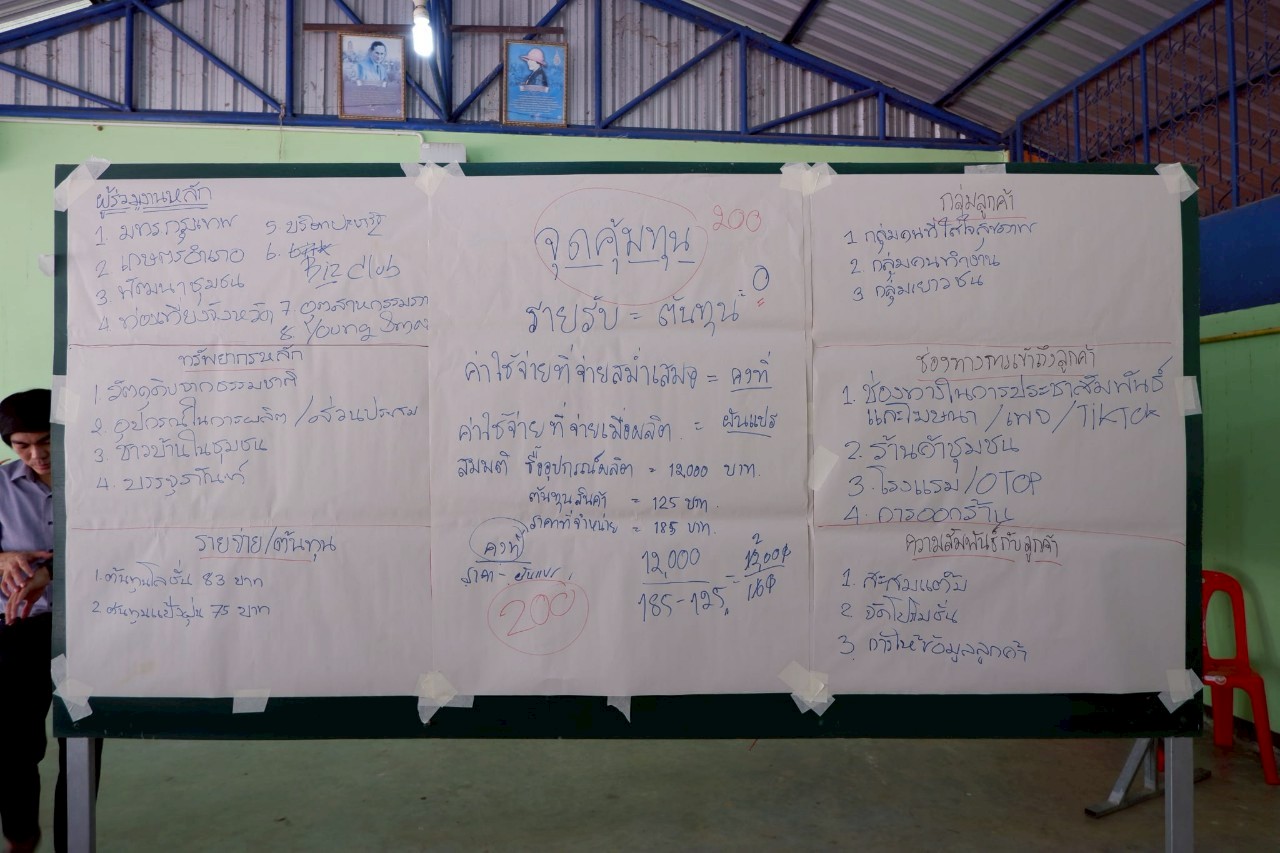 ผู้ร่วมงานหลัก
1. มทร.กรุงเทพ
2 เกษตรอำเภอ
3. พัฒนาชุมชน
4 ท่องเที่ยวจังหวัด
5 บริษัทประชารัฐ
6. Biz Club
7. อุตสาหกรรมภา
8. Young Smar
ทรัพยากรหลัก
1. วัตถุดิบจากธรรมชาติ
2 อุปกรณ์ในการผลิต/ส่วนประสม
3 ชาวบ้านในชุมชน
4. บรรจุภัณฑ์
รายจ่าย/ต้นทุน
1. ต้นทุนโลชั่น 83 บาท
2 ต้นทุนแป้งฝุ่น 75 บาท
จุดคุ้มทุน 200
รายรับ = ต้นทุน = 0
ค่าใช้จ่ายที่จ่ายสม่ำเสมอ = คงที่
ค่าใช้จ่ายที่จ่ายเมื่อผลิต = ผันแปร
สมมติ ซื้ออุปกรณ์ผลิต = 12,000 บาท.
ต้นทุนสินค้า = 125 บาท.
ราคาที่จำหน่าย = 185 บาท.
คงที่
ราคา - ผันแปร
200
12,000
185-125
กลุ่มลูกค้า
1 กลุ่มคนที่ใส่ใจสุขภาพ
2. กลุ่มคนทำงาน
3 กลุ่มเยาวชน
ช่องทางการเข้าถึงลูกค้า
1. ช่องทางในการประชาสัมพันธ์
และโฆษณา/เพจ/TikTok
2. ร้านค้าชุมชน
3. โรงแรม/OTOP
4. การออกร้าน
ความสัมพันธ์กับลูกค้า
1. สะสมแต้ม
2 จัดโปรโมชั่น
3. การให้ข้อมูลลูกค้า